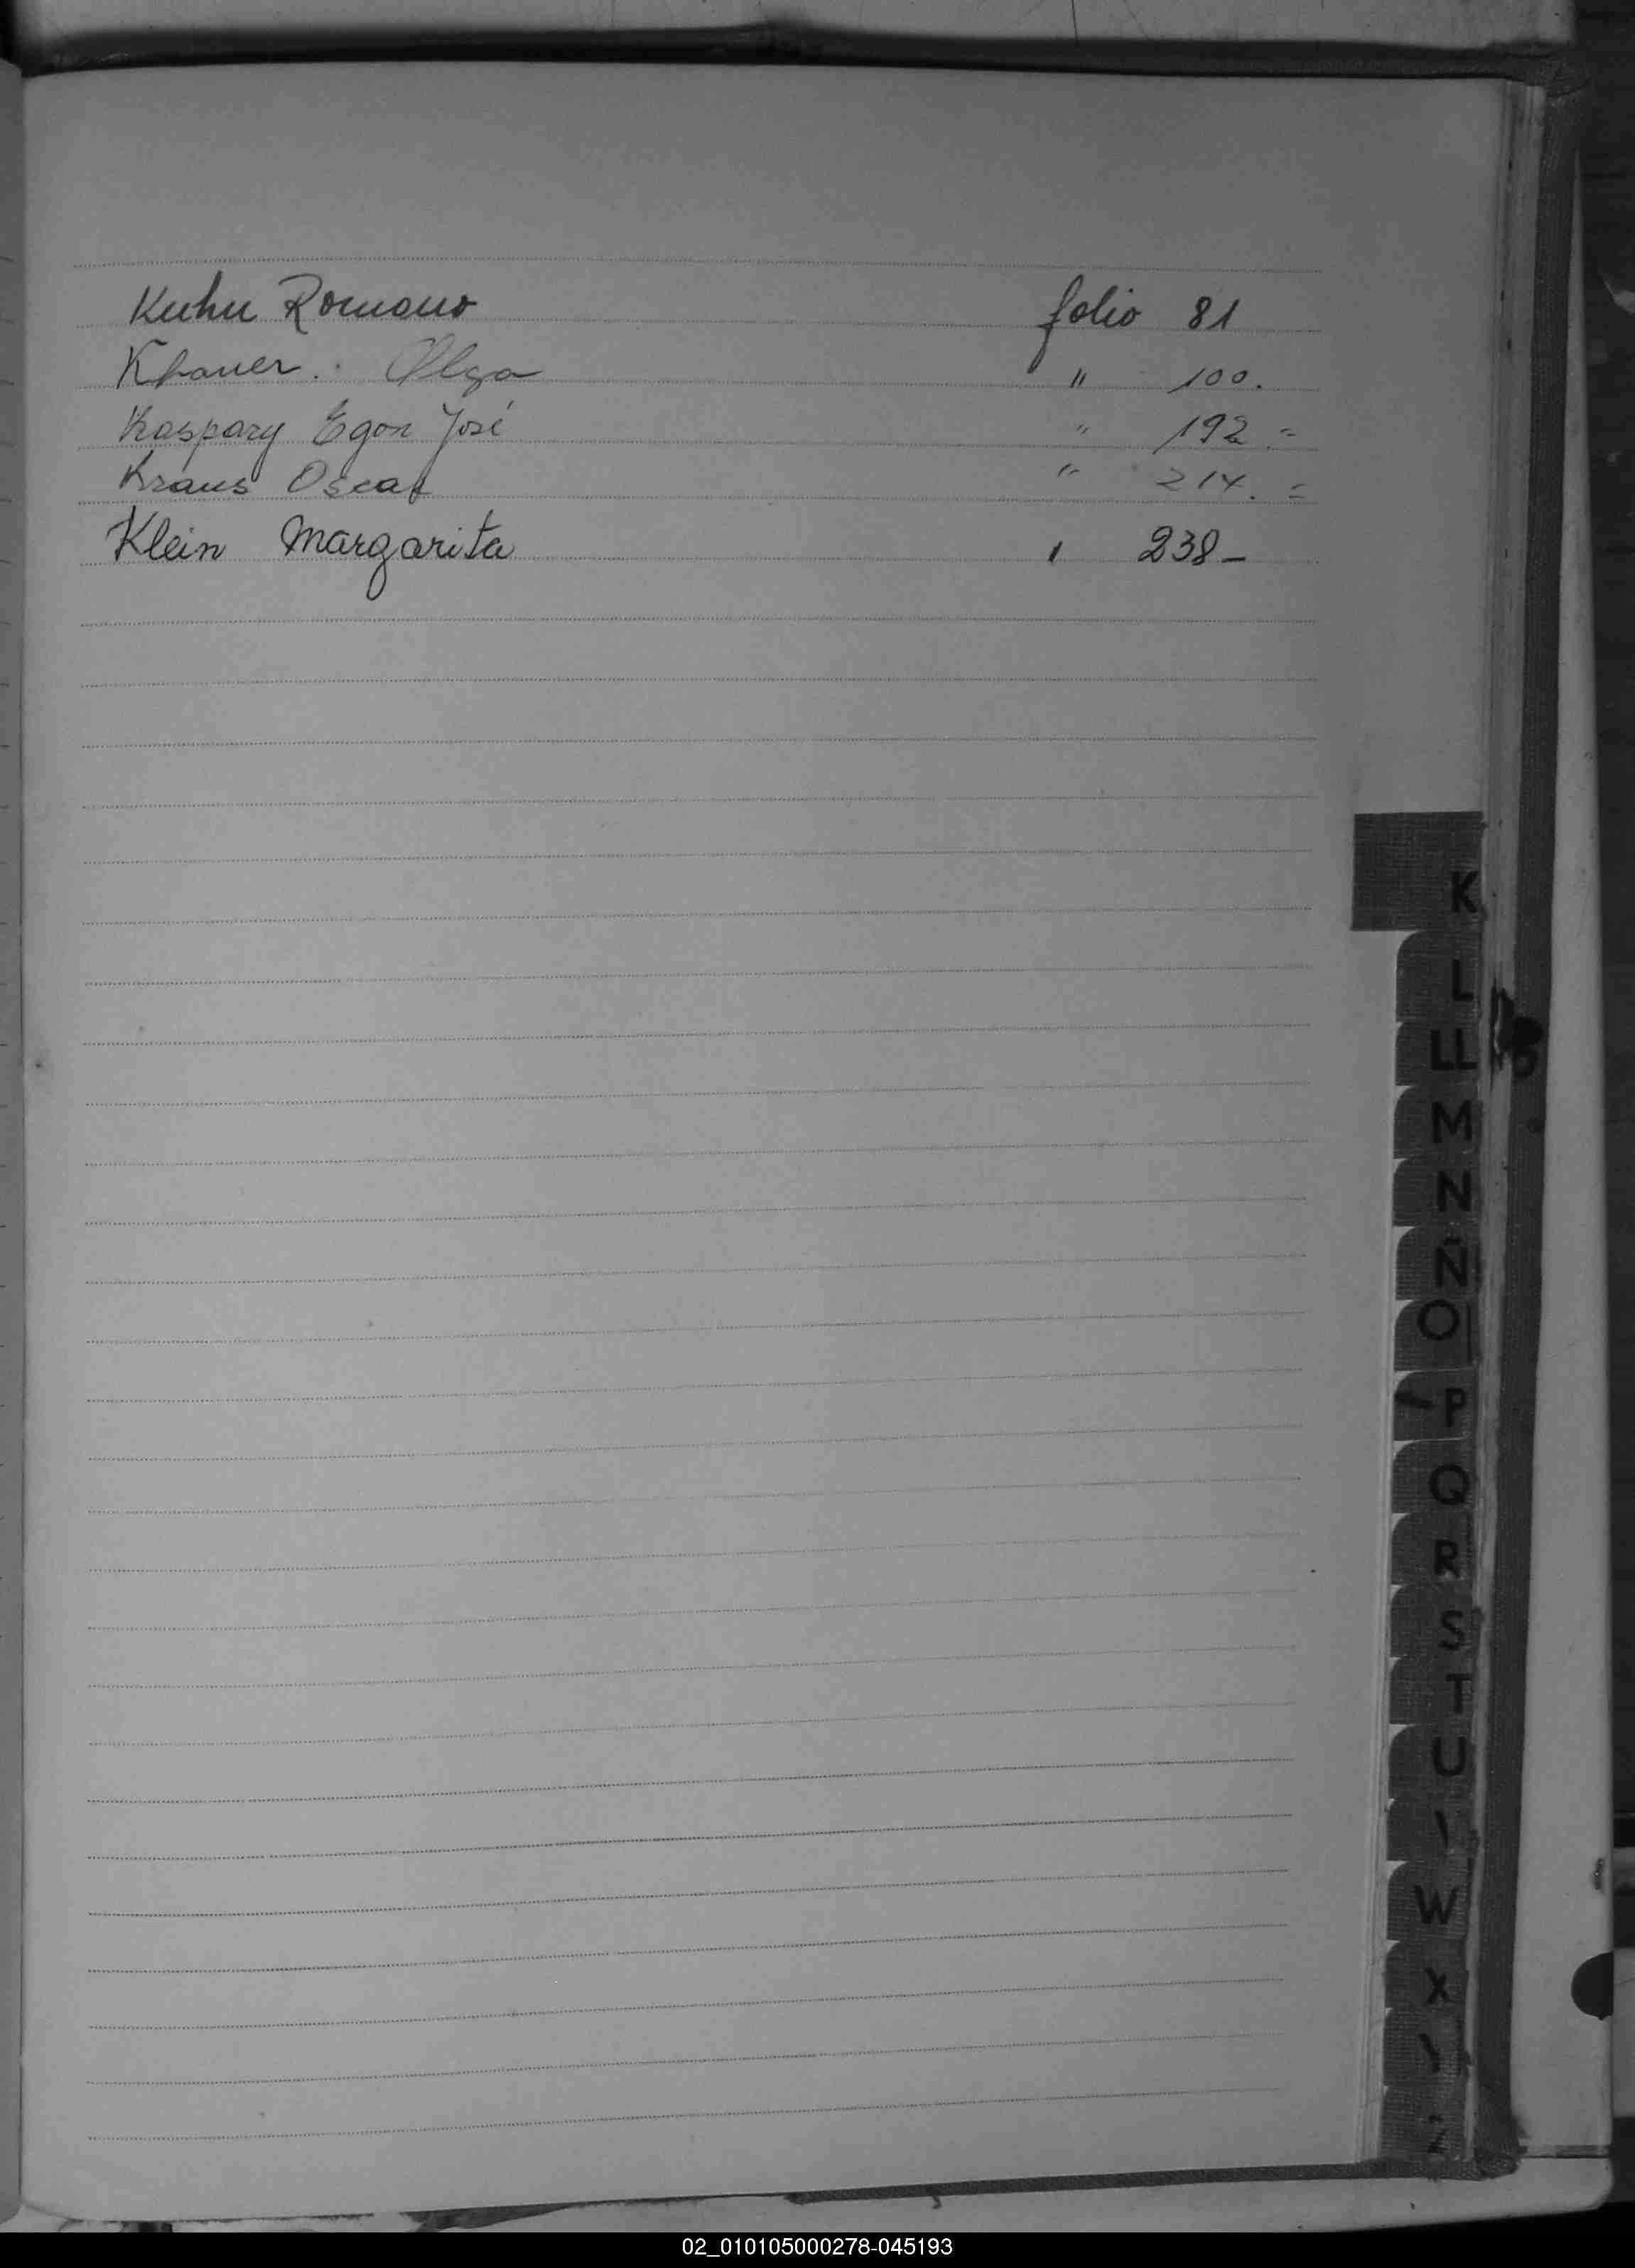 Kuhn Romano folio 81
Khauer. Olga " 100.
Kaspary Egon José " 192 =
Kraus Oscar " 214. =
Klein Margarita " 238 -
K
L
LL
M
N
Ñ
O
P
Q
R
S
T
U
W
X
Z
02_010105000278-045193